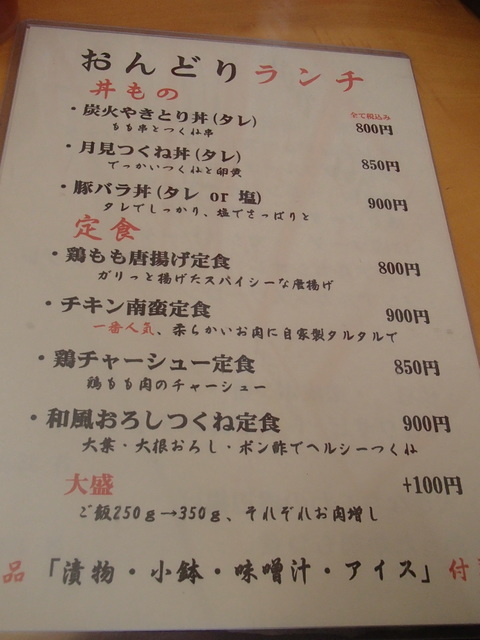 おんどりランチ
丼もの
全て税込み
・炭火やきとり丼(タレ) 800円
もも串とつくね串
・月見つくね丼(タレ) 850円
でっかいつくねと卵黄
・豚バラ丼(タレ or 塩) 900円
タレでしっかり、塩でさっぱりと
定食
・鶏もも唐揚げ定食 800円
ガリっと揚げたスパイシーな唐揚げ
・チキン南蛮定食 900円
一番人気、柔らかいお肉に自家製タルタルで
・鶏チャーシュー定食 850円
鶏もも肉のチャーシュー
・和風おろしつくね定食 900円
大葉・大根おろし・ポン酢でヘルシーつくね
大盛 +100円
ご飯250g→350g、それぞれお肉増し
品「漬物・小鉢・味噌汁・アイス」付